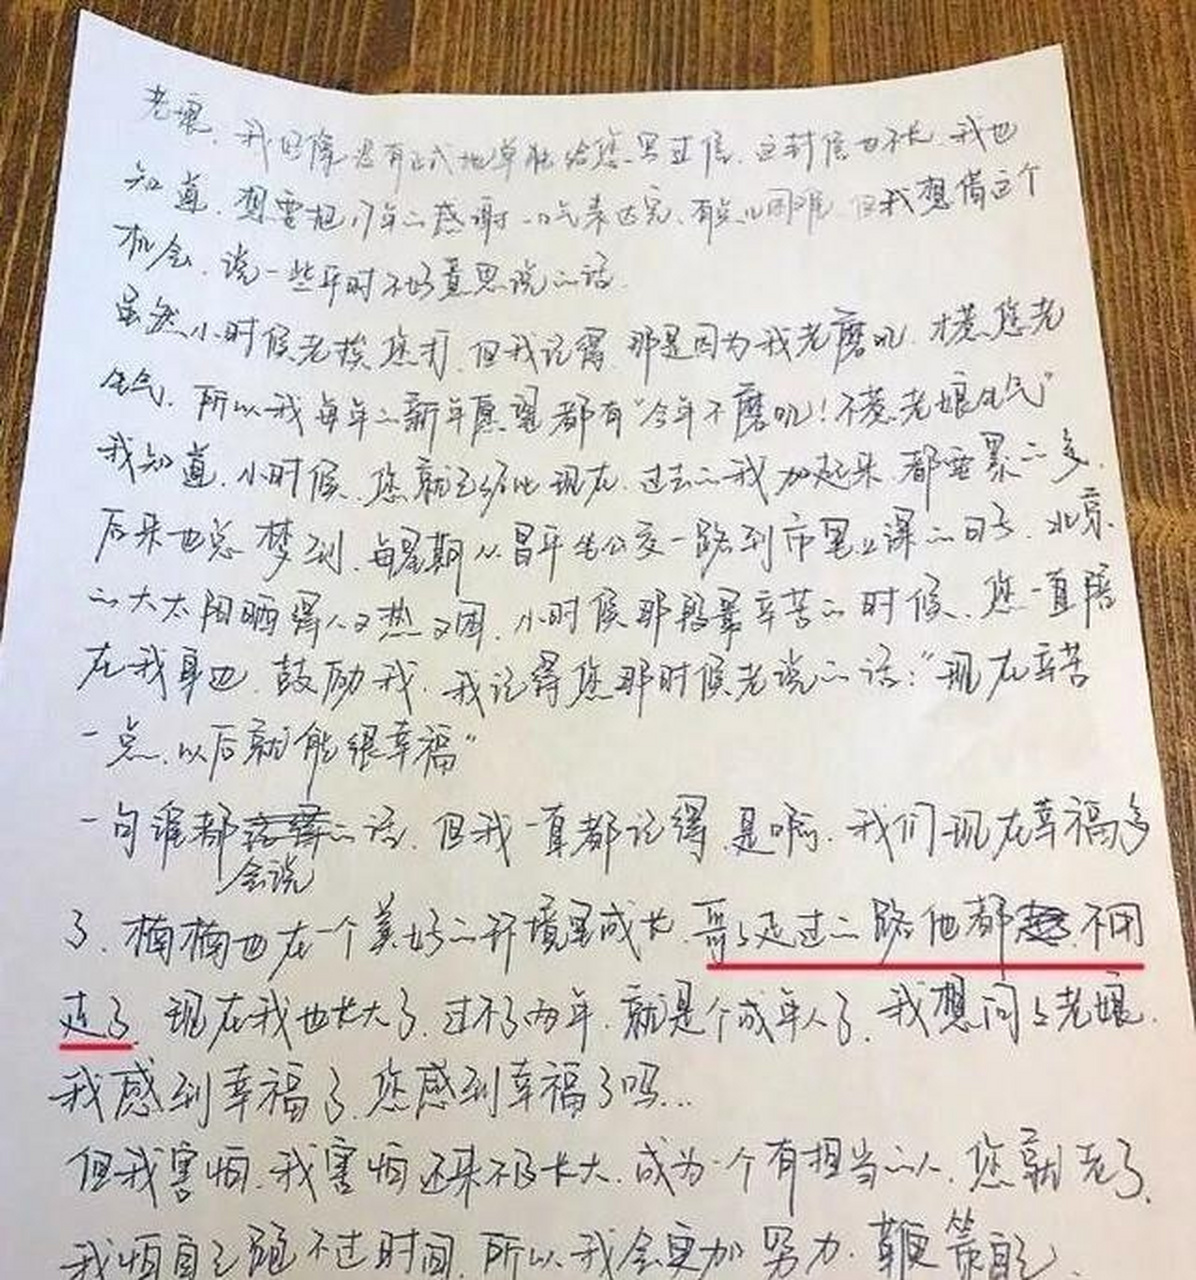 老娘，我好像没有正式地单独给您写过信，这封信也不长，我也
知道，想要把17年的感谢一口气表达完，有点儿困难，但我想借这个
机会，说一些平时不好意思说的话。
虽然小时候老挨您打，但我记得，那是因为我老磨叽，才惹您老
生气，所以我每年的新年愿望都有“今年不磨叽！不惹老娘生气”
我知道，小时候，您就已经比现在、过去的我加起来，都要累的多，
后来也总梦到，每星期从昌平坐公交一路到市里上课的日子，北京
的大太阳晒得人又热又困，小时候那段最辛苦的时候，您一直陪
在我身边，鼓励我，我记得您那时候老说的话：“现在辛苦
一点，以后就能很幸福”
一句谁都会说的话，但我一直都记得，是啊，我们现在幸福多
了，楠楠也在一个美好的环境里成长，哥哥走过的路他都不用
走了，现在我也长大了，过不了两年，就是个成年人了，我想问问老娘，
我感到幸福了，您感到幸福了吗...
但我害怕，我害怕还来不及长大，成为一个有担当的人，您就老了，
我怕自己跑不过时间，所以我会更加努力，鞭策自己，